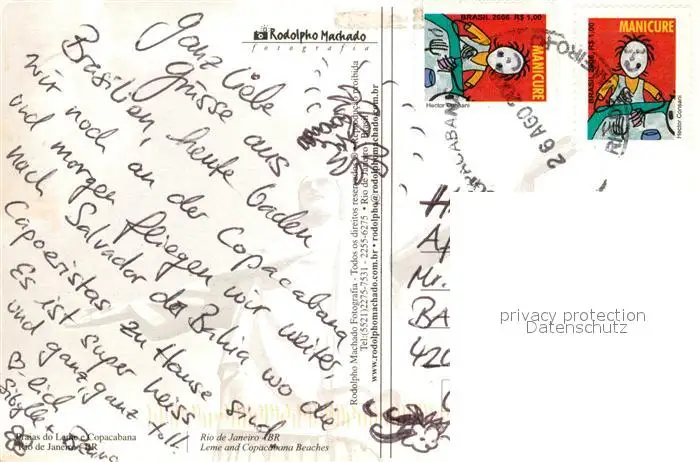 Ganz liebe
Grüsse aus
Brasilien, heute baden
wir noch an der Copacabana
und morgen fliegen wir weiter,
nach Salvador da Bahia wo die
Capoeristas zu Hause sind
Es ist super heiss
und ganz, ganz toll.
B. dich
Sibylle +
Praias do Leme e Copacabana
Rio de Janeiro - BR
Rio de Janeiro - BR
Leme and Copacabana Beaches
Rodolpho Machado
fotografia
Rodolpho Machado Fotografia - Todos os direitos reservados - Reprodução proibida
Tel:(5521)2275-7531 - 2255-6275 • Rio de Janeiro • Brasil
www.rodolphomachado.com.br • rodolpho@rodolphomachado.com.br
BRASIL 2006 R$ 1,00
MANICURE
Hector Consani
BRASIL 2006 R$ 1,00
MANICURE
Hector Consani
COPACABANA
26 AGO
Mr.
BA
420
privacy protection
Datenschutz